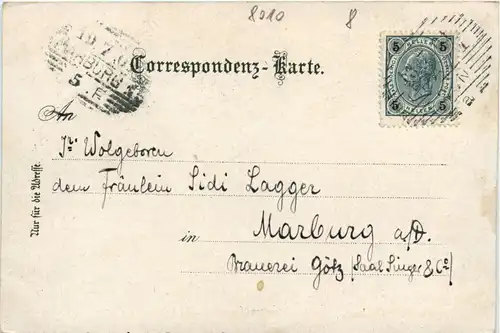 8010
8
Correspondenz-Karte.
5 5
5 5
MARBURG
5.F
An
Nur für die Adresse.
Jr. Wolgeboren
dem Fräulein Sidi Lagger
in Marburg a/D.
Brauerei Götz (Saal Singer & Co)